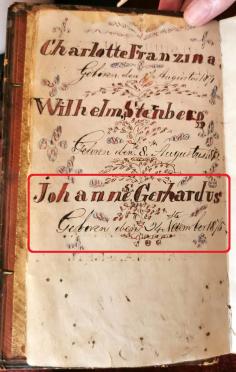 Charlotte Franzina
Geboren den Augustus
Wilhelm Stenberg
Geboren den 8 Augustus
Johanne Gerhardus
Geboren den 24